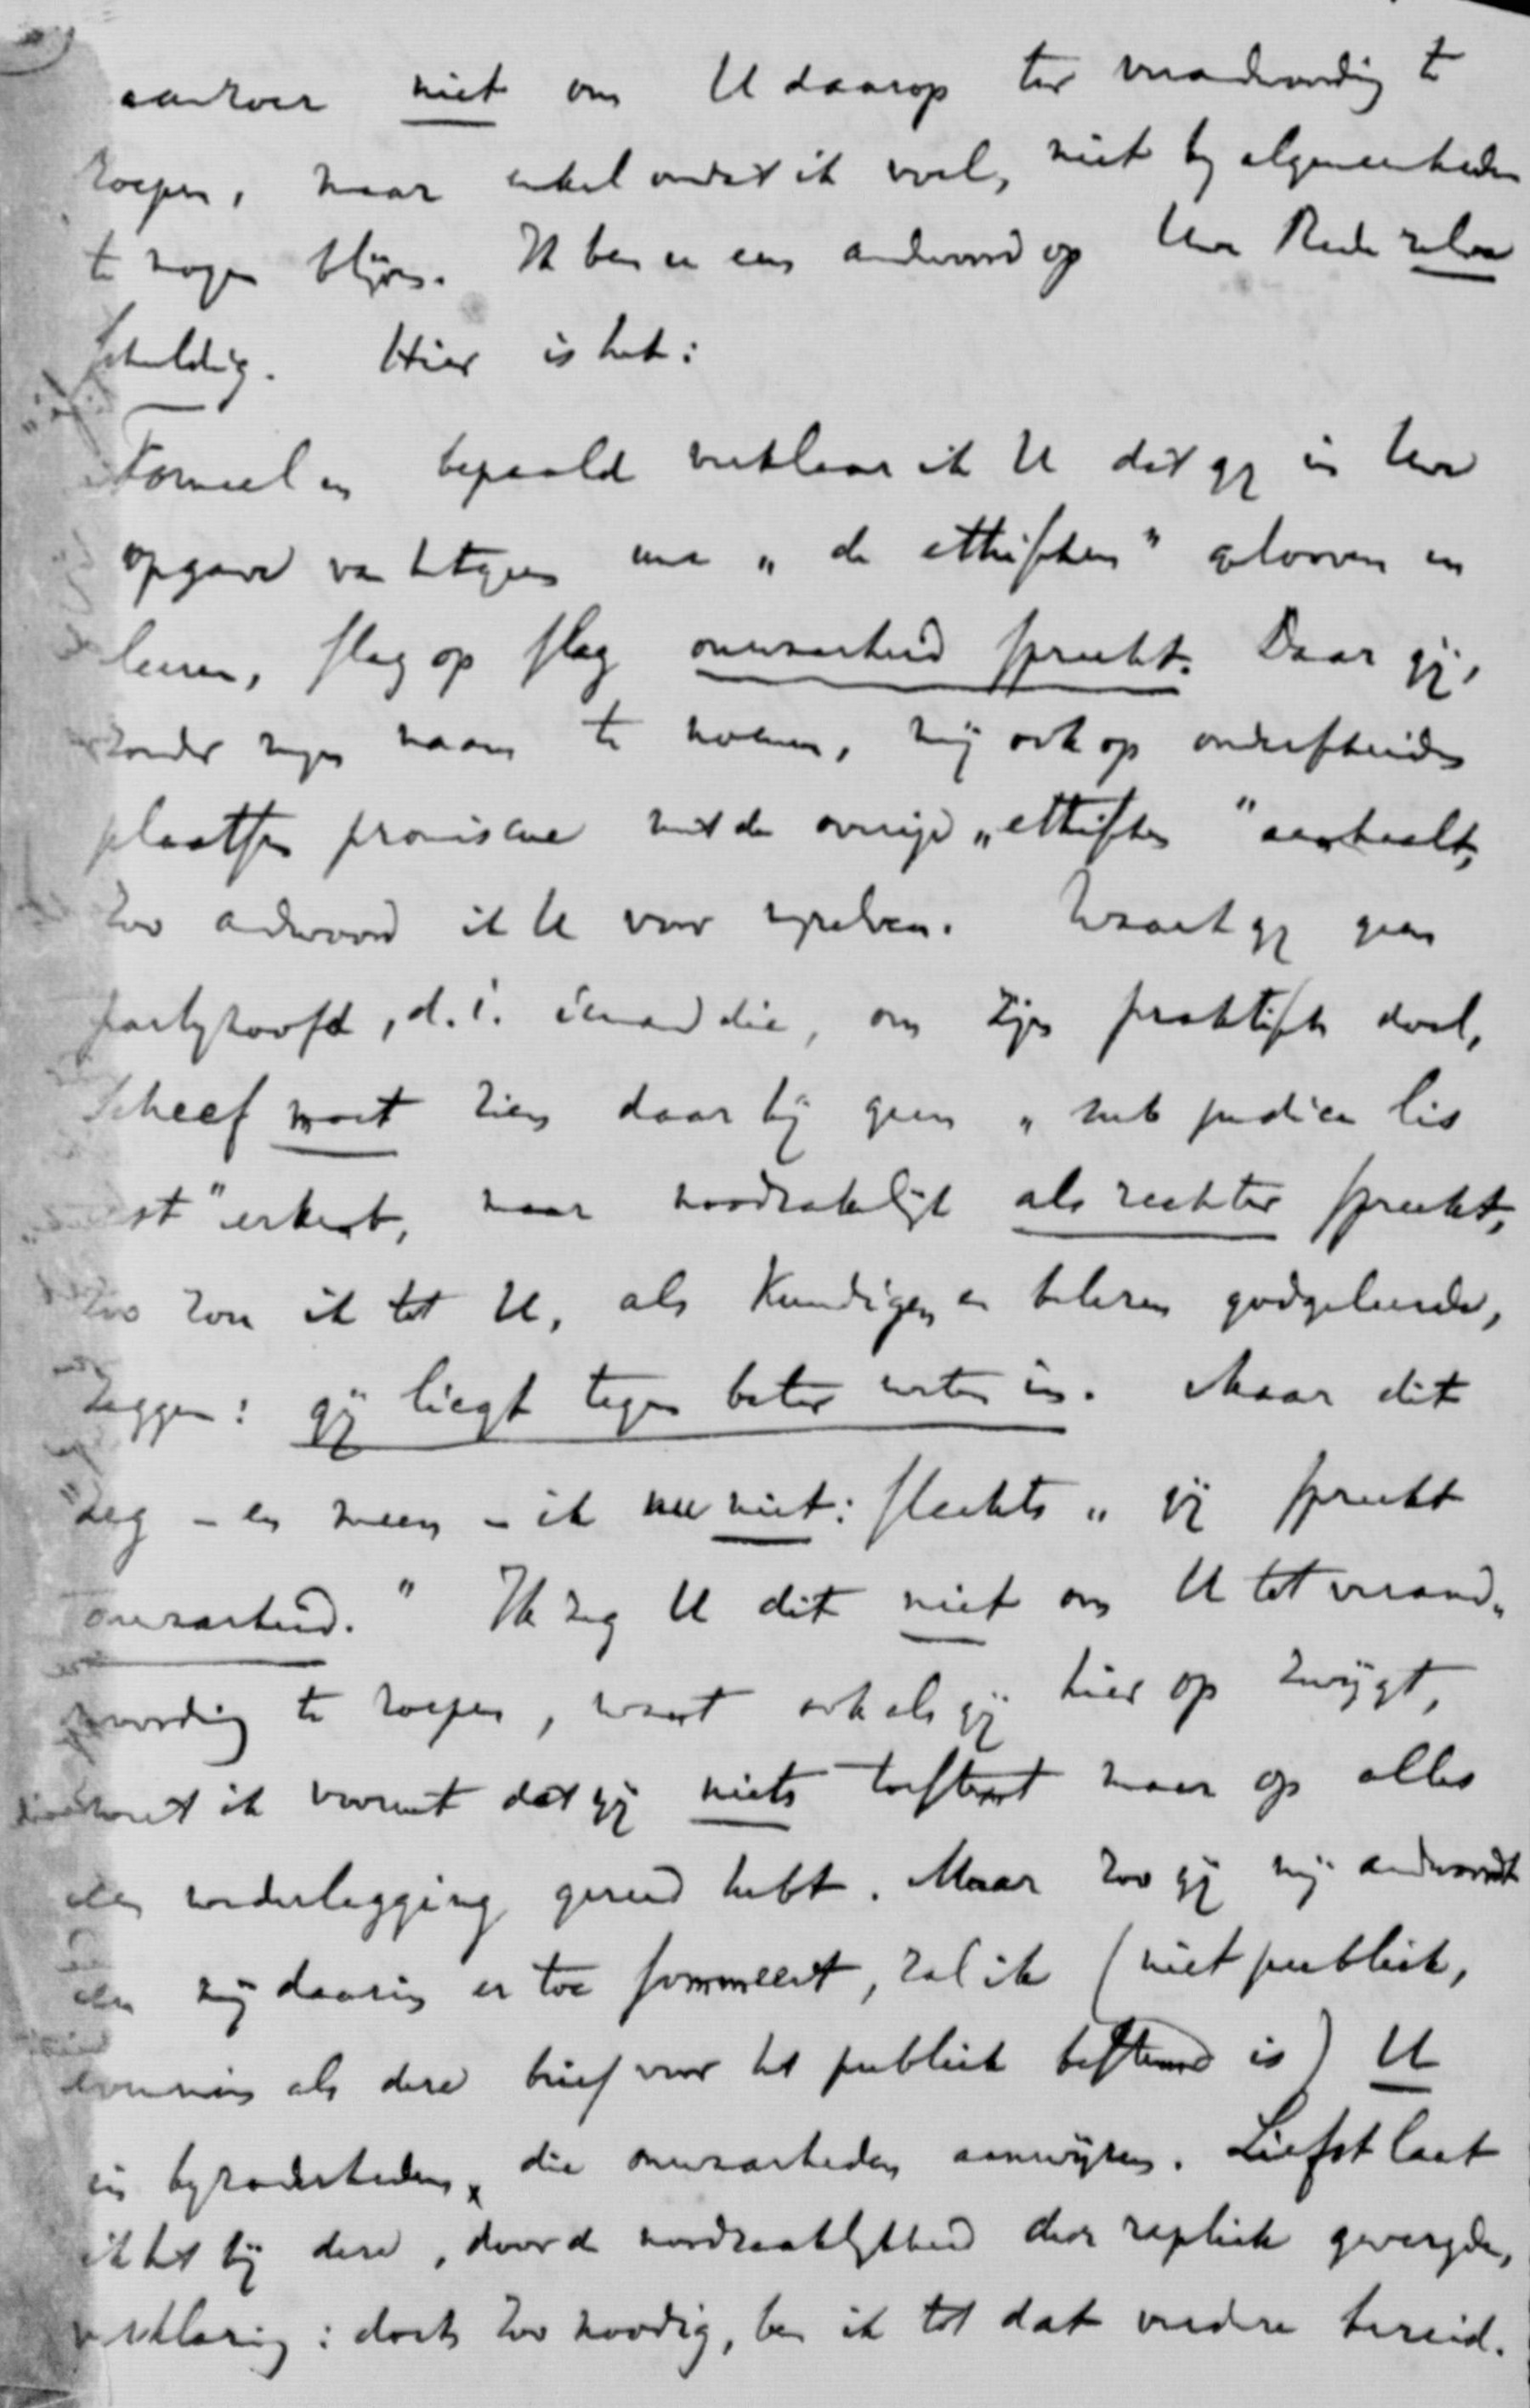 aanvoer niet om U daarop ter verandwoording te
roepen, maar enkel omdat ik voel, niet by algemeenheden
te mogen blijven. Ik ben u een andwoord op Uwe Rede zelve
schuldig. Hier is het:
Formeel en bepaald verklaar ik U dat gij in Uwe
opgave van hetgeen wa „de ethischen" gelooven en
leeren, slag op slag onwaarheid spreekt. Daar gij,
zonder mijn naam te noemen, mij ook op onderscheiden
plaatsen promiscue met de overige „ethischen" aanhaalt,
zoo andwoord ik U voor mijzelven. Waart gij geen
partyhoofd, d.i. iemand die, om zijn praktisch doel,
scheef moet zien daar hij geen „sub judice lis
est" erkent, maar noodzakelijk als rechter spreekt,
zoo zou ik tot U, als kundigen en belezen godgeleerde,
zeggen: gij liegt tegen beter weten in. Maar dit
zeg – en meen – ik nu niet: slechts „gij spreekt
onwaarheid." Ik zeg U dit niet om U tot verand„
woording te roepen, want ook als gij hier op zwijgt,
weet ik vooruit dat gij niets toestemt maar op alles
een wederlegging gereed hebt. Maar zoo gij mij andwoordt
en mij daarin er toe sommeert, zal ik (niet publiek,
evenmin als deze brief voor het publiek bestemd is) U
in byzonderheden, die onwaarheden aanwijzen. Liefst laat
ik het bij deze, door de noodzaaklykheid der repliek gevergde,
verklaring: doch zoo noodig, ben ik tot dat verdere bereid.